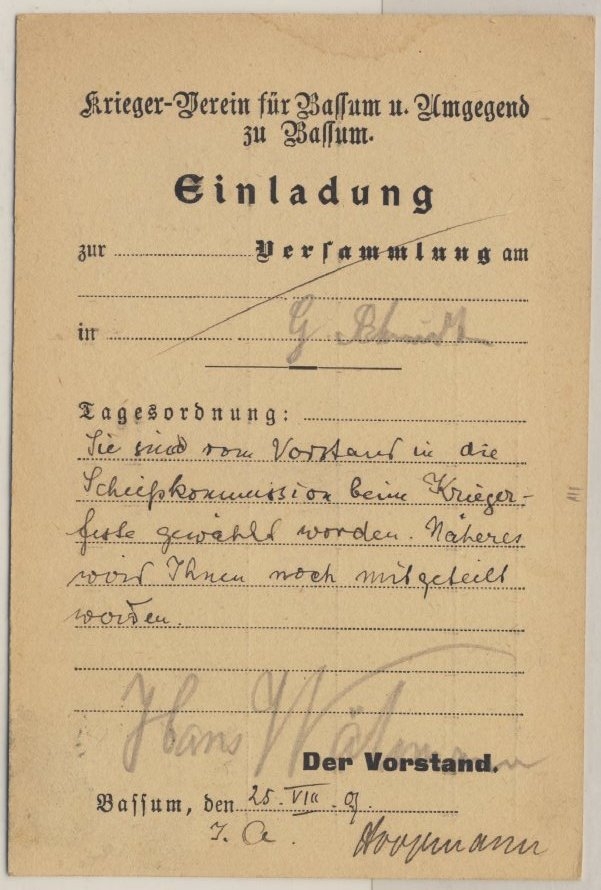 Krieger-Verein für Bassum u. Umgegend
zu Bassum.
Einladung
zur Versammlung am
in G
Tagesordnung:
Sie sind vom Vorstand in die
Scheißkommission beim Krieger-
feste gewählt worden. Näheres
wird Ihnen noch mitgeteilt
worden.
Hans
Der Vorstand.
Bassum, den 25. VII
I. A.